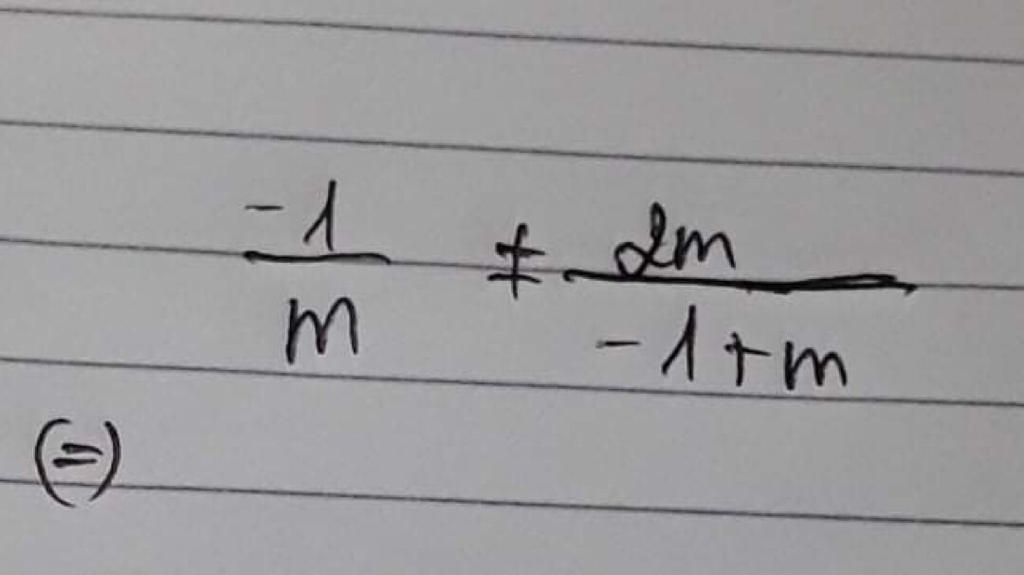 -1/m ≠ 2m/(-1+m)
(=)